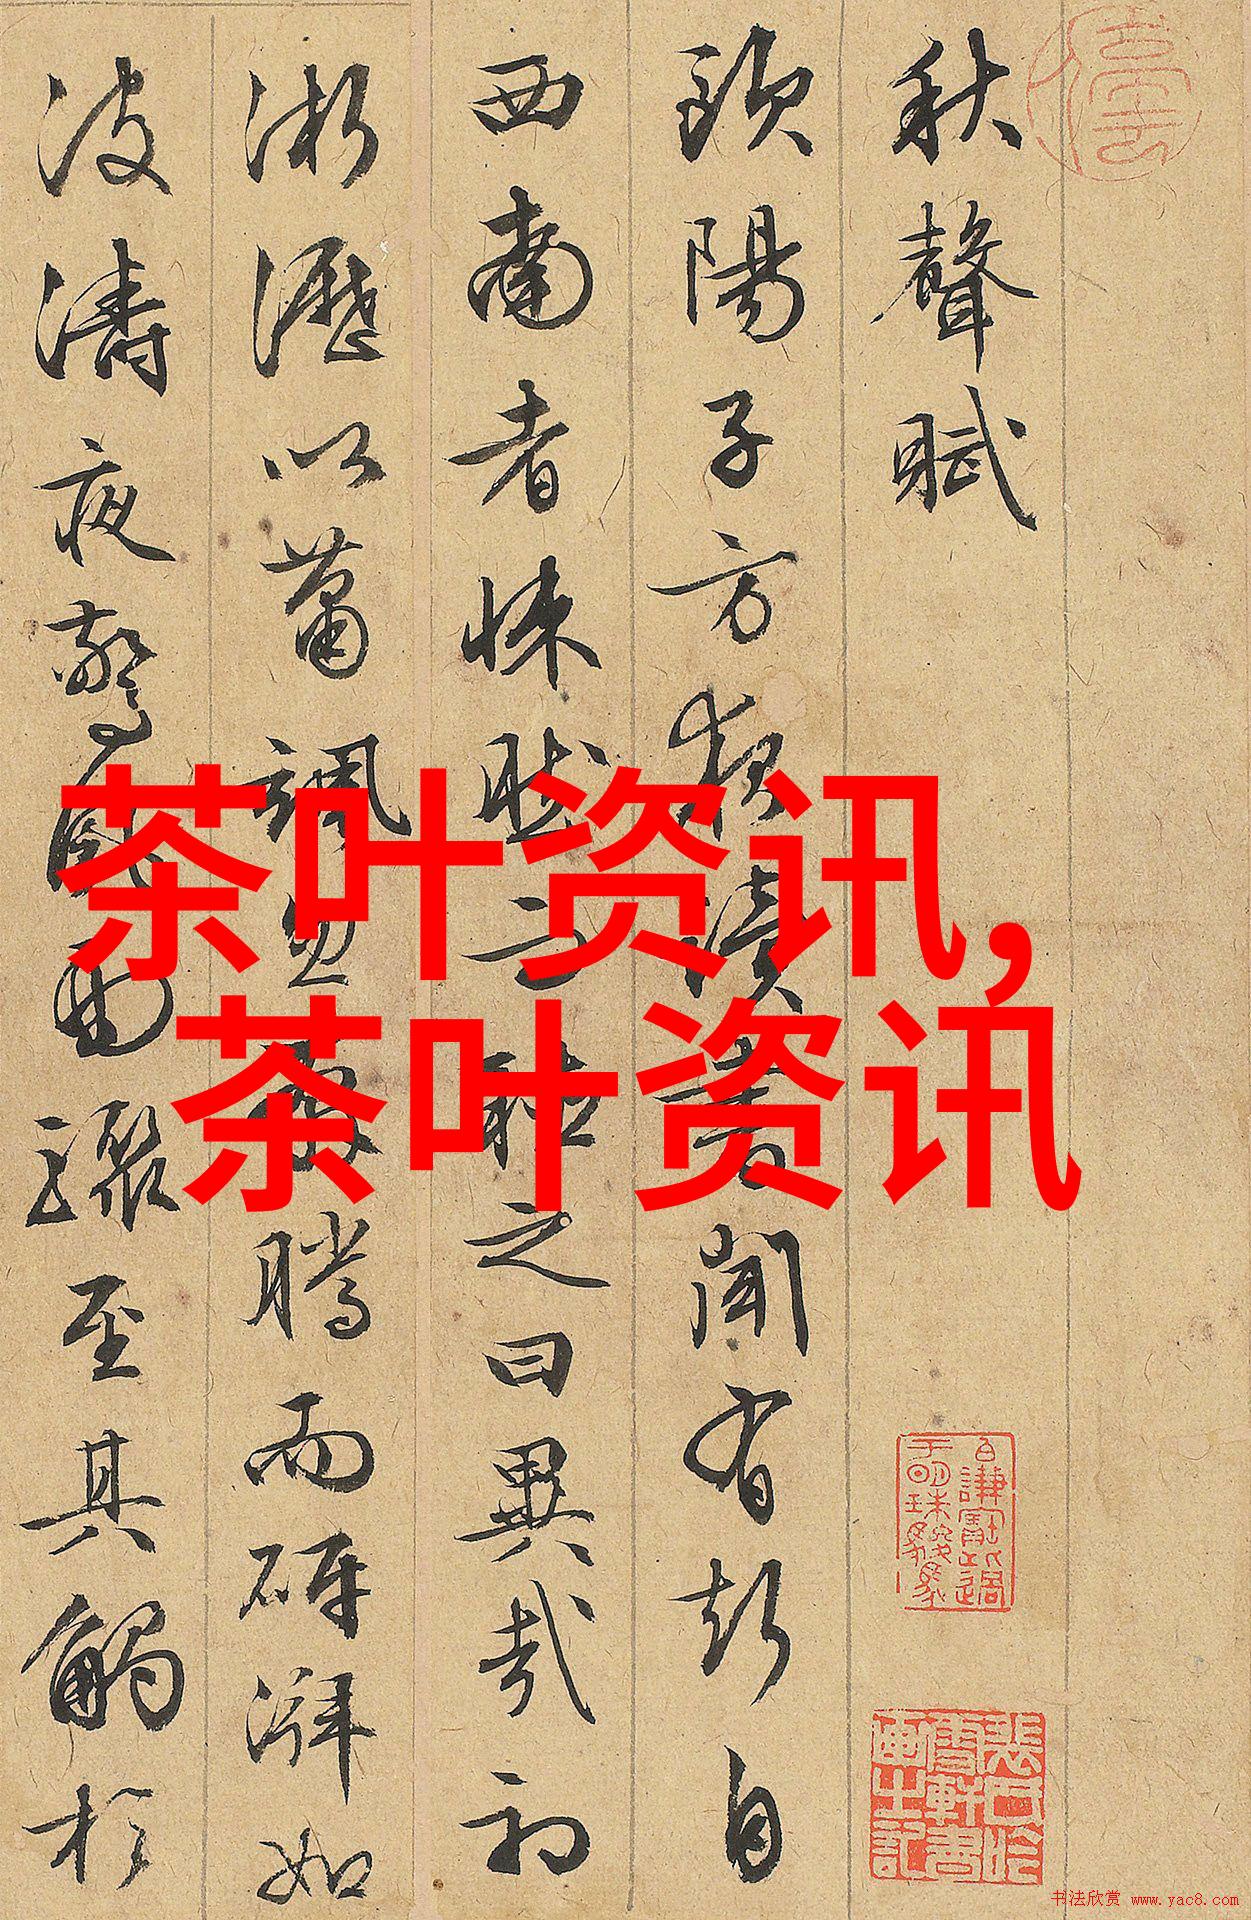 秋聲賦
歐陽子方夜讀書聞有聲自
西南者悚然而聽之曰異哉初
淅瀝以蕭颯忽奔騰而砰湃如
波濤夜驚風雨驟至其觸於
茶叶资讯,
茶叶资讯
书法欣赏 www.yac8.com